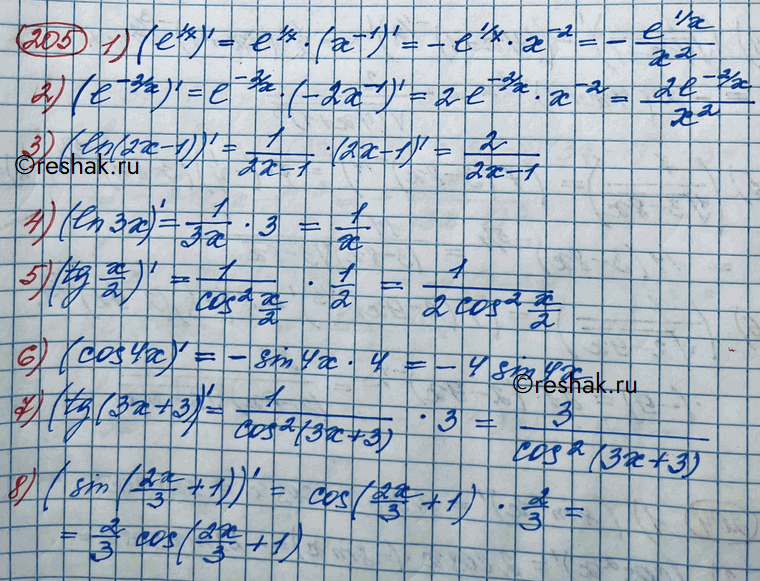 205 1) (e^{1/x})' = e^{1/x} · (x^{-1})' = -e^{1/x} · x^{-2} = - e^{1/x} / x^2
2) (e^{-2/x})' = e^{-2/x} · (-2x^{-1})' = 2e^{-2/x} · x^{-2} = 2e^{-2/x} / x^2
3) (ln(2x-1))' = 1/(2x-1) · (2x-1)' = 2/(2x-1)
©reshak.ru
4) (ln 3x)' = 1/(3x) · 3 = 1/x
5) (tg x/2)' = 1/(cos^2 x/2) · 1/2 = 1/(2 cos^2 x/2)
6) (cos 4x)' = - sin 4x · 4 = - 4 sin 4x
©reshak.ru
7) (tg (3x+3))' = 1/(cos^2 (3x+3)) · 3 = 3/(cos^2 (3x+3))
8) (sin (2x/3 + 1))' = cos(2x/3 + 1) · 2/3 =
= 2/3 cos(2x/3 + 1)